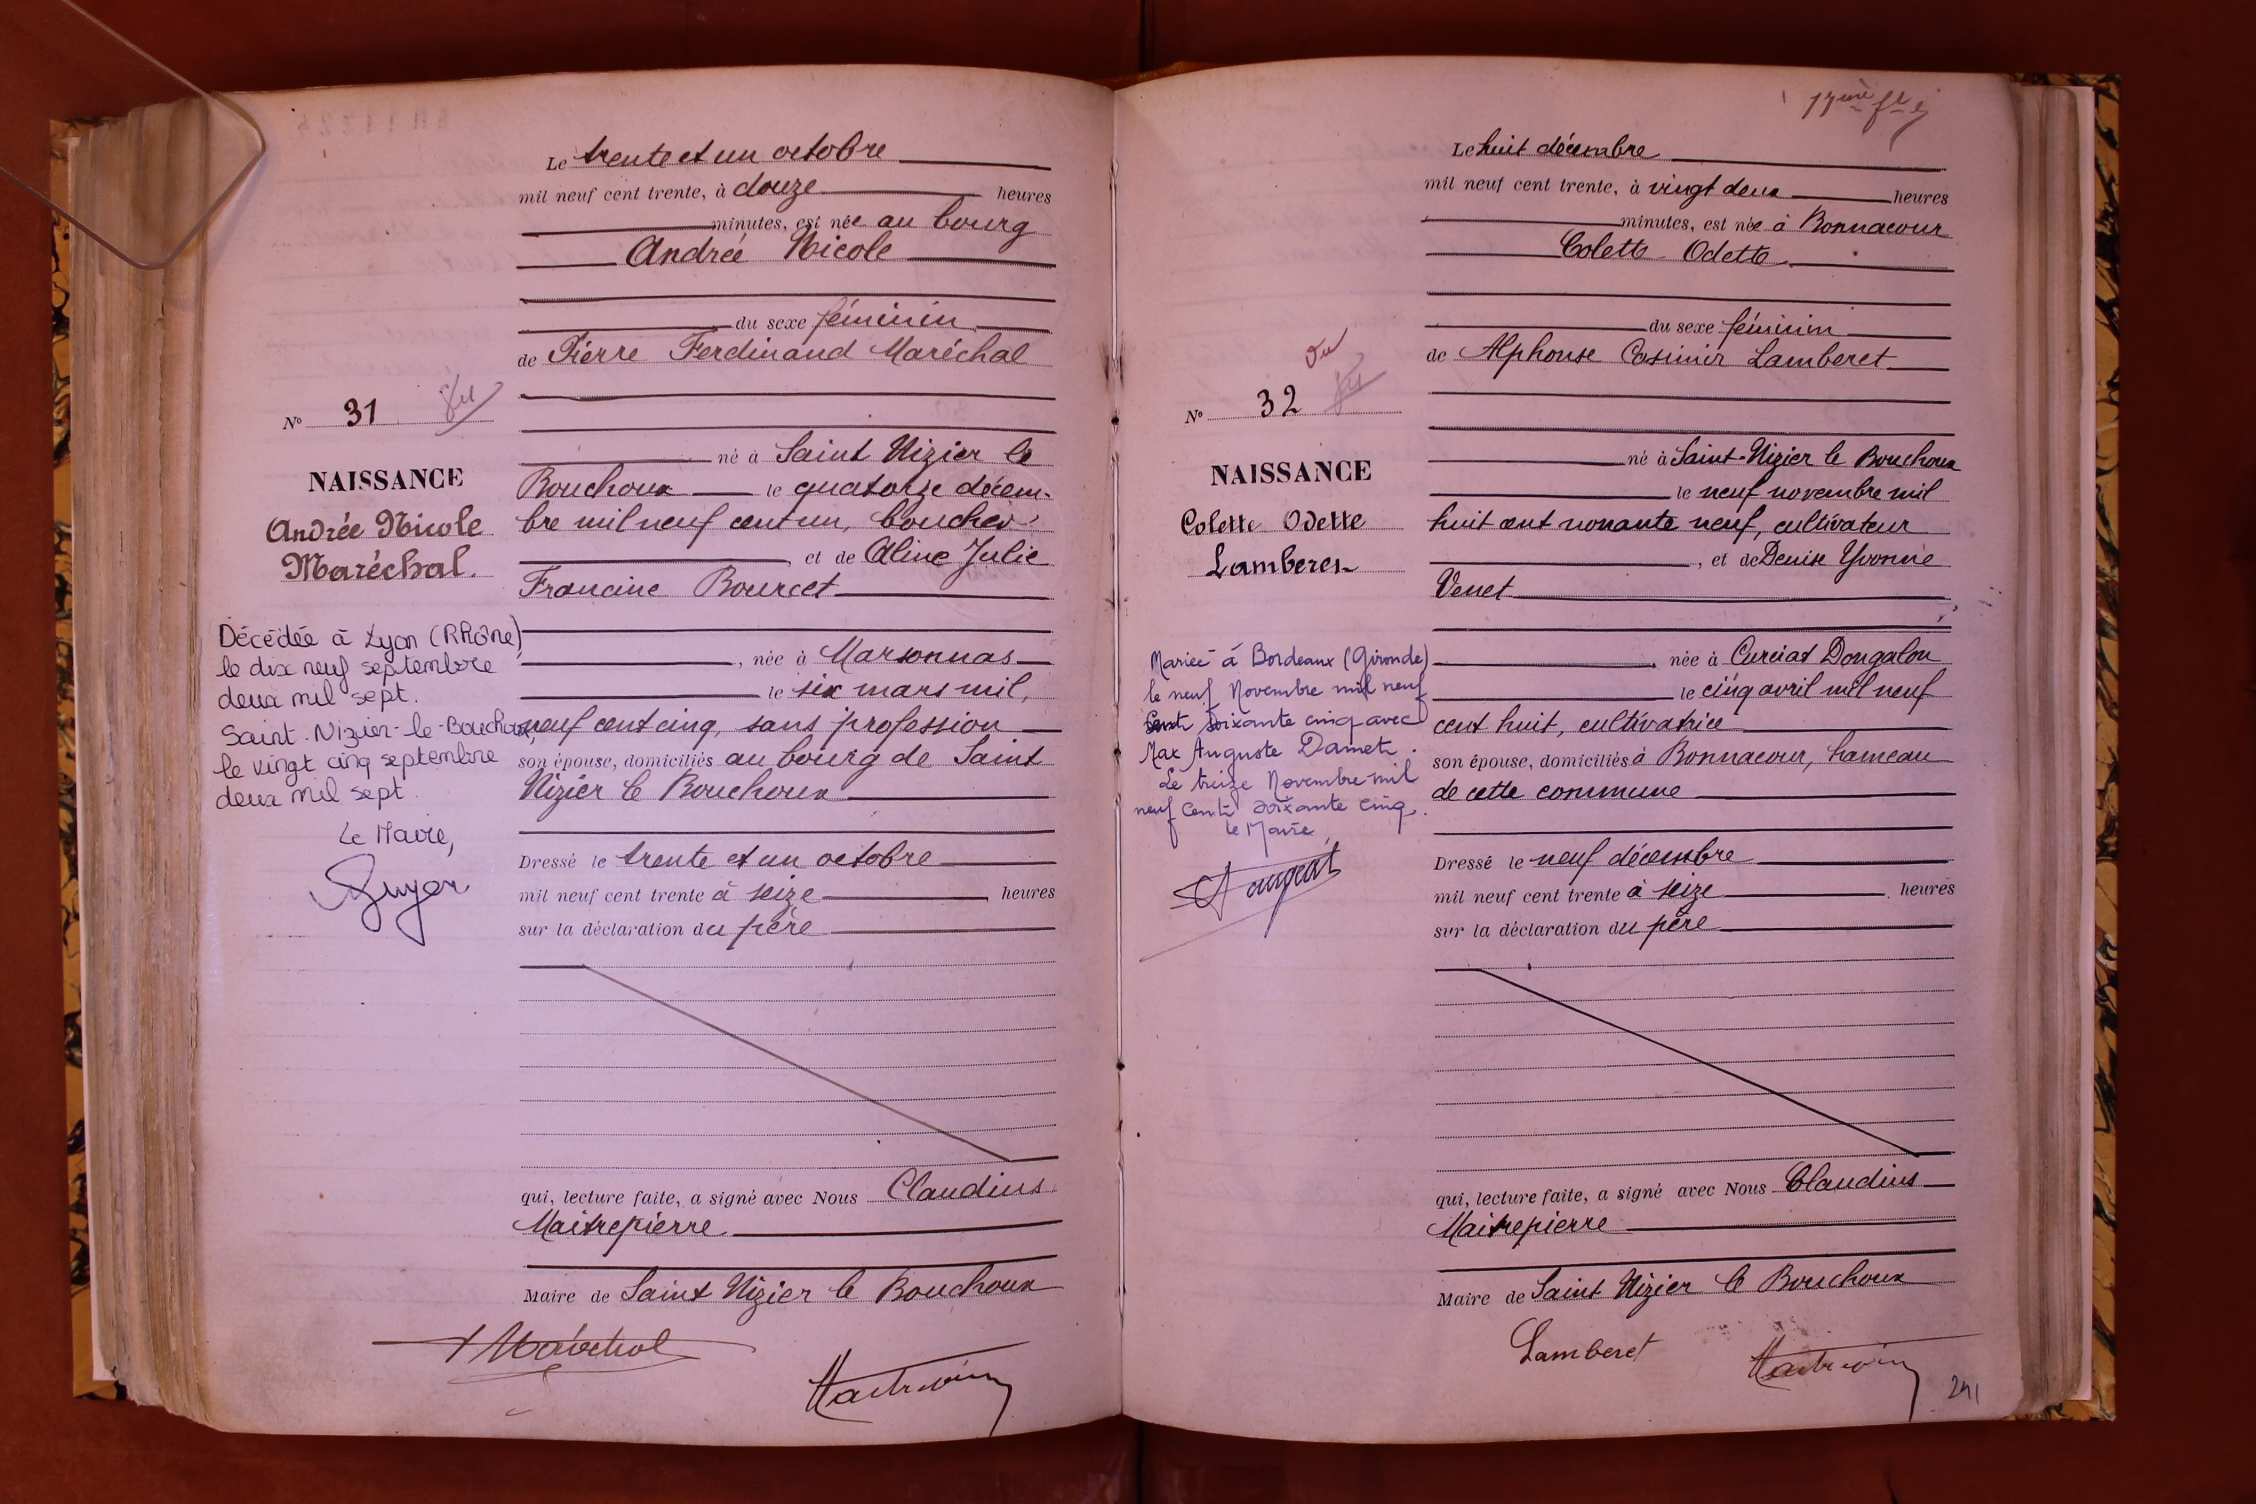 Le trente et un octobre
mil neuf cent trente, à douze heures
minutes, est née au bourg
Andrée Nicole
du sexe féminin
de Pierre Ferdinand Maréchal
N° 31
né à Saint Nizier le
Bouchoux le quatorze décem-
bre mil neuf cent un, boucher
et de Aline Julie
Francine Bourcet
NAISSANCE
Andrée Nicole
Maréchal.
Décédée à Lyon (Rhône)
le dix neuf septembre
deux mil sept.
Saint-Nizier-le-Bouchoux,
le vingt cinq septembre
deux mil sept.
Le Maire,
Guyon
, née à Marsonnas
le six mars mil,
neuf cent cinq, sans profession
son épouse, domiciliés au bourg de Saint
Nizier le Bouchoux
Dressé le trente et un octobre
mil neuf cent trente à seize heures
sur la déclaration du père
qui, lecture faite, a signé avec Nous Claudius
Maitrepierre
Maire de Saint Nizier le Bouchoux
Maréchal
17ème
Le huit décembre
mil neuf cent trente, à vingt deux heures
minutes, est née à Bonnacour
Colette Odette
du sexe féminin
de Alphonse Casimir Lamberet
Vu
N° 32
né à Saint-Nizier le Bouchoux
le neuf novembre mil
huit cent nonante neuf, cultivateur
, et de Denise Yvonne
Venet
NAISSANCE
Colette Odette
Lamberet
Mariée à Bordeaux (Gironde)
le neuf Novembre mil neuf
Cent Soixante cinq avec
Max Auguste Damet.
Le treize Novembre mil
neuf Cent soixante cinq.
le Maire,
née à Curciat Dongalon
le cinq avril mil neuf
cent huit, cultivatrice
son épouse, domiciliés à Bonnacour, hameau
de cette commune
Dressé le neuf décembre
mil neuf cent trente à seize heures
sur la déclaration du père
qui, lecture faite, a signé avec Nous Claudius
Maitrepierre
Maire de Saint Nizier le Bouchoux
Lamberet
241